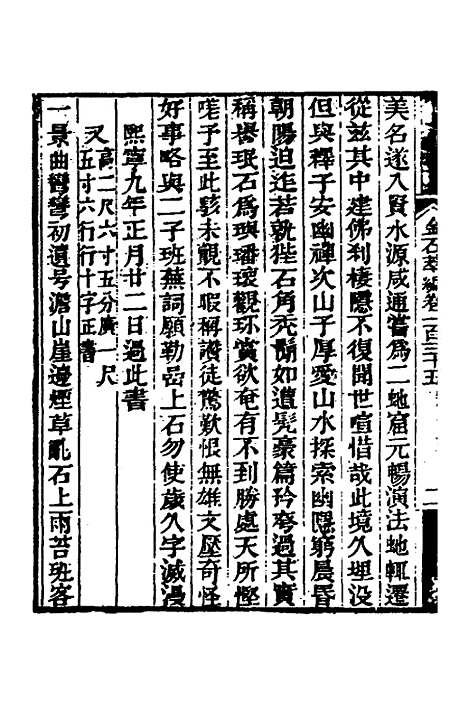 美名遂入賢水源咸通嘗為二虵窟元暢演法虵輒遷
從茲其中建佛刹棲隱不復聞世喧惜哉此境久埋沒
但與釋子安幽禪次山子厚愛山水探索幽隱窮晨昏
朝陽迫迮若就狴石角禿鬅如遭髠豪篇矜夸過其實
稱譽珉石為璵璠瓌觀珎賞欲奄有不到勝處天所慳
嗟予至此駭未覩不暇稱讚徒驚歎恨無雄文壓奇怪
好事略與二子班蕪詞願勒嵒上石勿使歲久字滅漫
熙寧九年正月廿二日過此書
又
高二尺六寸五分廣一尺
五寸六行行十字正書
一景曲彎彎初遺号澹山崖邊煙草亂石上雨苔班客
金石萃編卷一百三十五
二